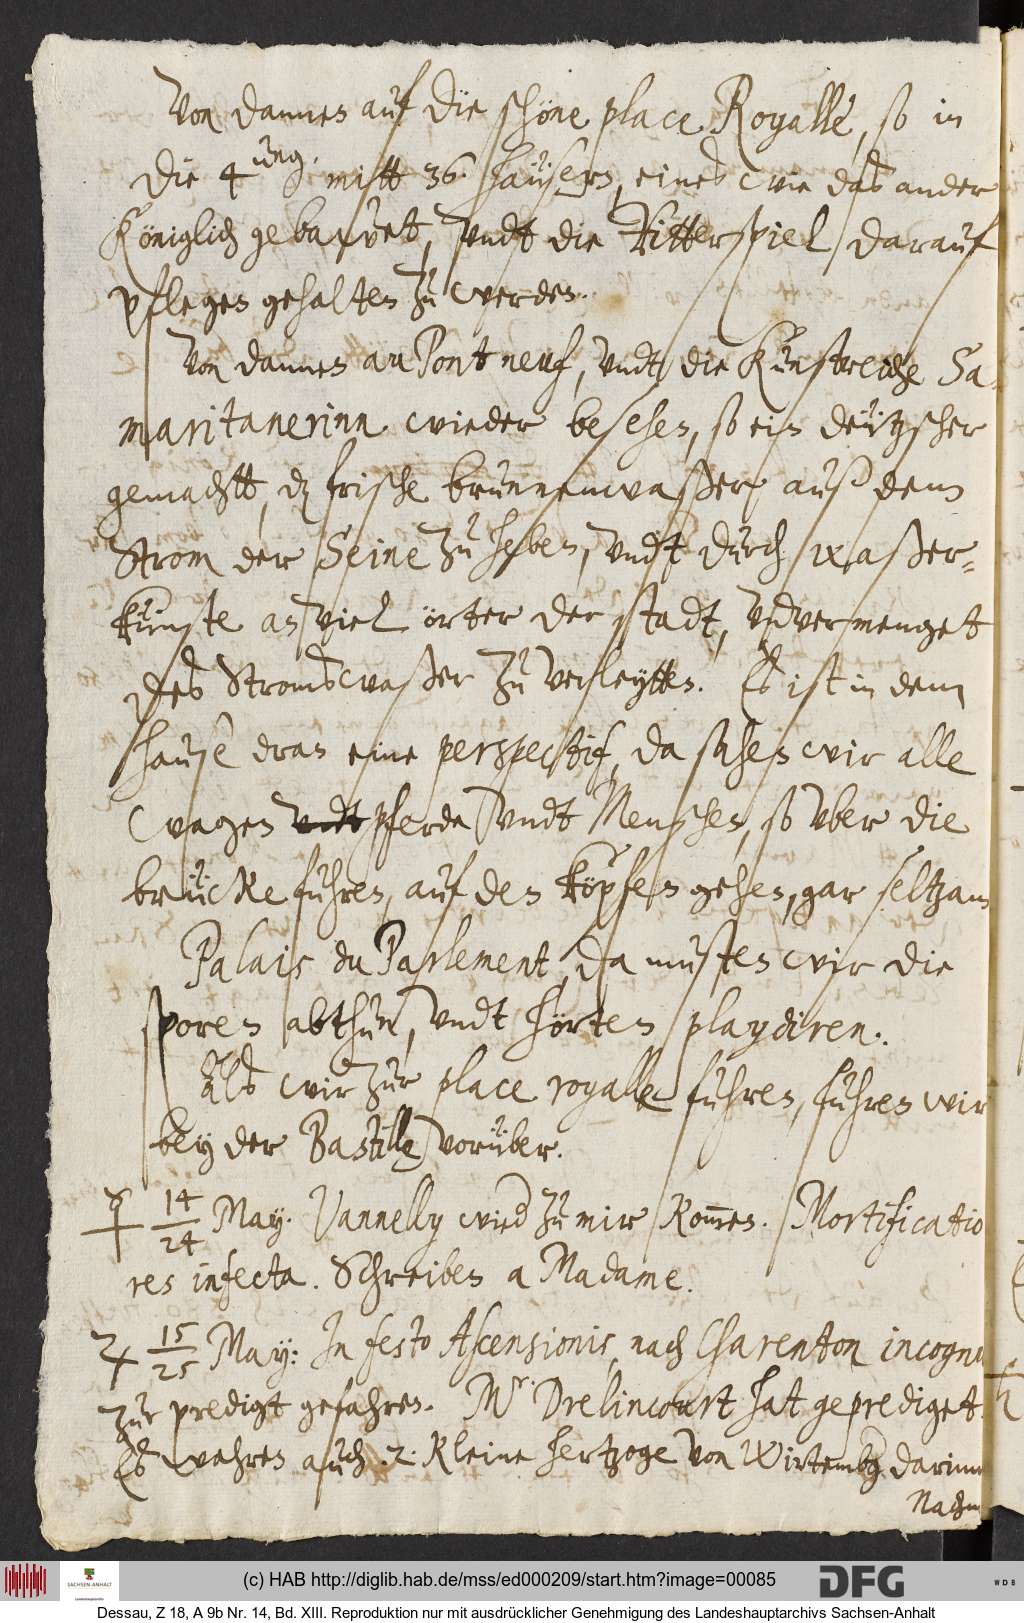 Von dannen auf die schöne place Royalle, so in
die 4 ung. mitt 36. häusern, eines wie das ander
Königlich gebawet, undt die Ritterspiel darauf
pflegen gehalten zu werden.
Von dannen au Pont neuf, undt die Kunstreiche Sa-
maritanerinn wieder besehen, so ein deützscher
gemachtt, dz frische brunnenwaßer auß dem
Strom der Seine zu heben, undt durch waßer-
künste an viel örter der stadt, unvermenget
des Stromswaßer zu verleytten. Es ist in dem
hause dran eine perspectif, da sahen wir alle
wagen pferde undt Menschen, so uber die
brücke fuhren, auf den köpfen gehen, gar seltzam
Palais du Parlement, da musten wir die
sporen abthun, undt hörten playdiren.
Als wir zur place royalle fuhren, fuhren wir
bey der Bastille vorüber.
☿ 14/24 May. Vannelly wird zu mir kommen. Mortificatio
res infecta. Schreiben a Madame.
♃ 15/25 May: In festo Ascensionis, nach Charenton incogni
zur predigt gefahren. Mr. Drelincourt hat geprediget.
Es wahren auch .2. kleine hertzoge von Wirtembg. darinn
Nachm
(c) HAB http://diglib.hab.de/mss/ed000209/start.htm?image=00085
SACHSEN-ANHALT
Landeshauptarchiv
DFG
WDB
Dessau, Z 18, A 9b Nr. 14, Bd. XIII. Reproduktion nur mit ausdrücklicher Genehmigung des Landeshauptarchivs Sachsen-Anhalt